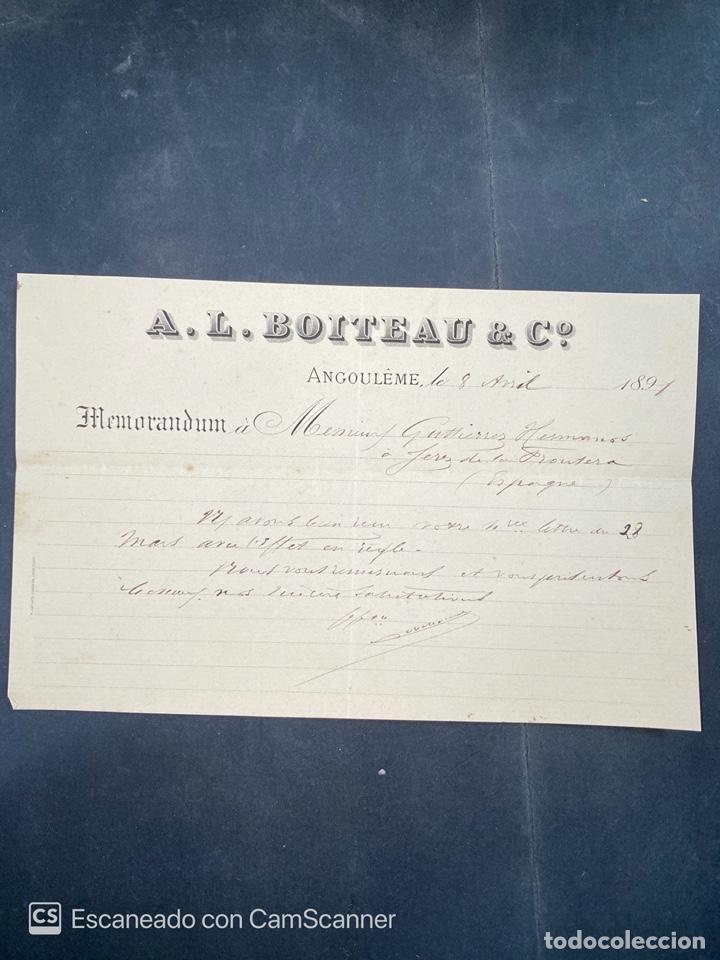 A. L. BOITEAU & Cº
ANGOULÊME, le 8 Avril 1891
Memorandum à Messieurs Guttierrez Hermanos
à Jerez de la Frontera
(Espagne)
avons bien reçu votre lettre du 28
Mars avec l'Effet en règle.
Nous vous remercions et vous présentons
Messieurs nos sincères salutations
CS Escaneado con CamScanner
todocoleccion